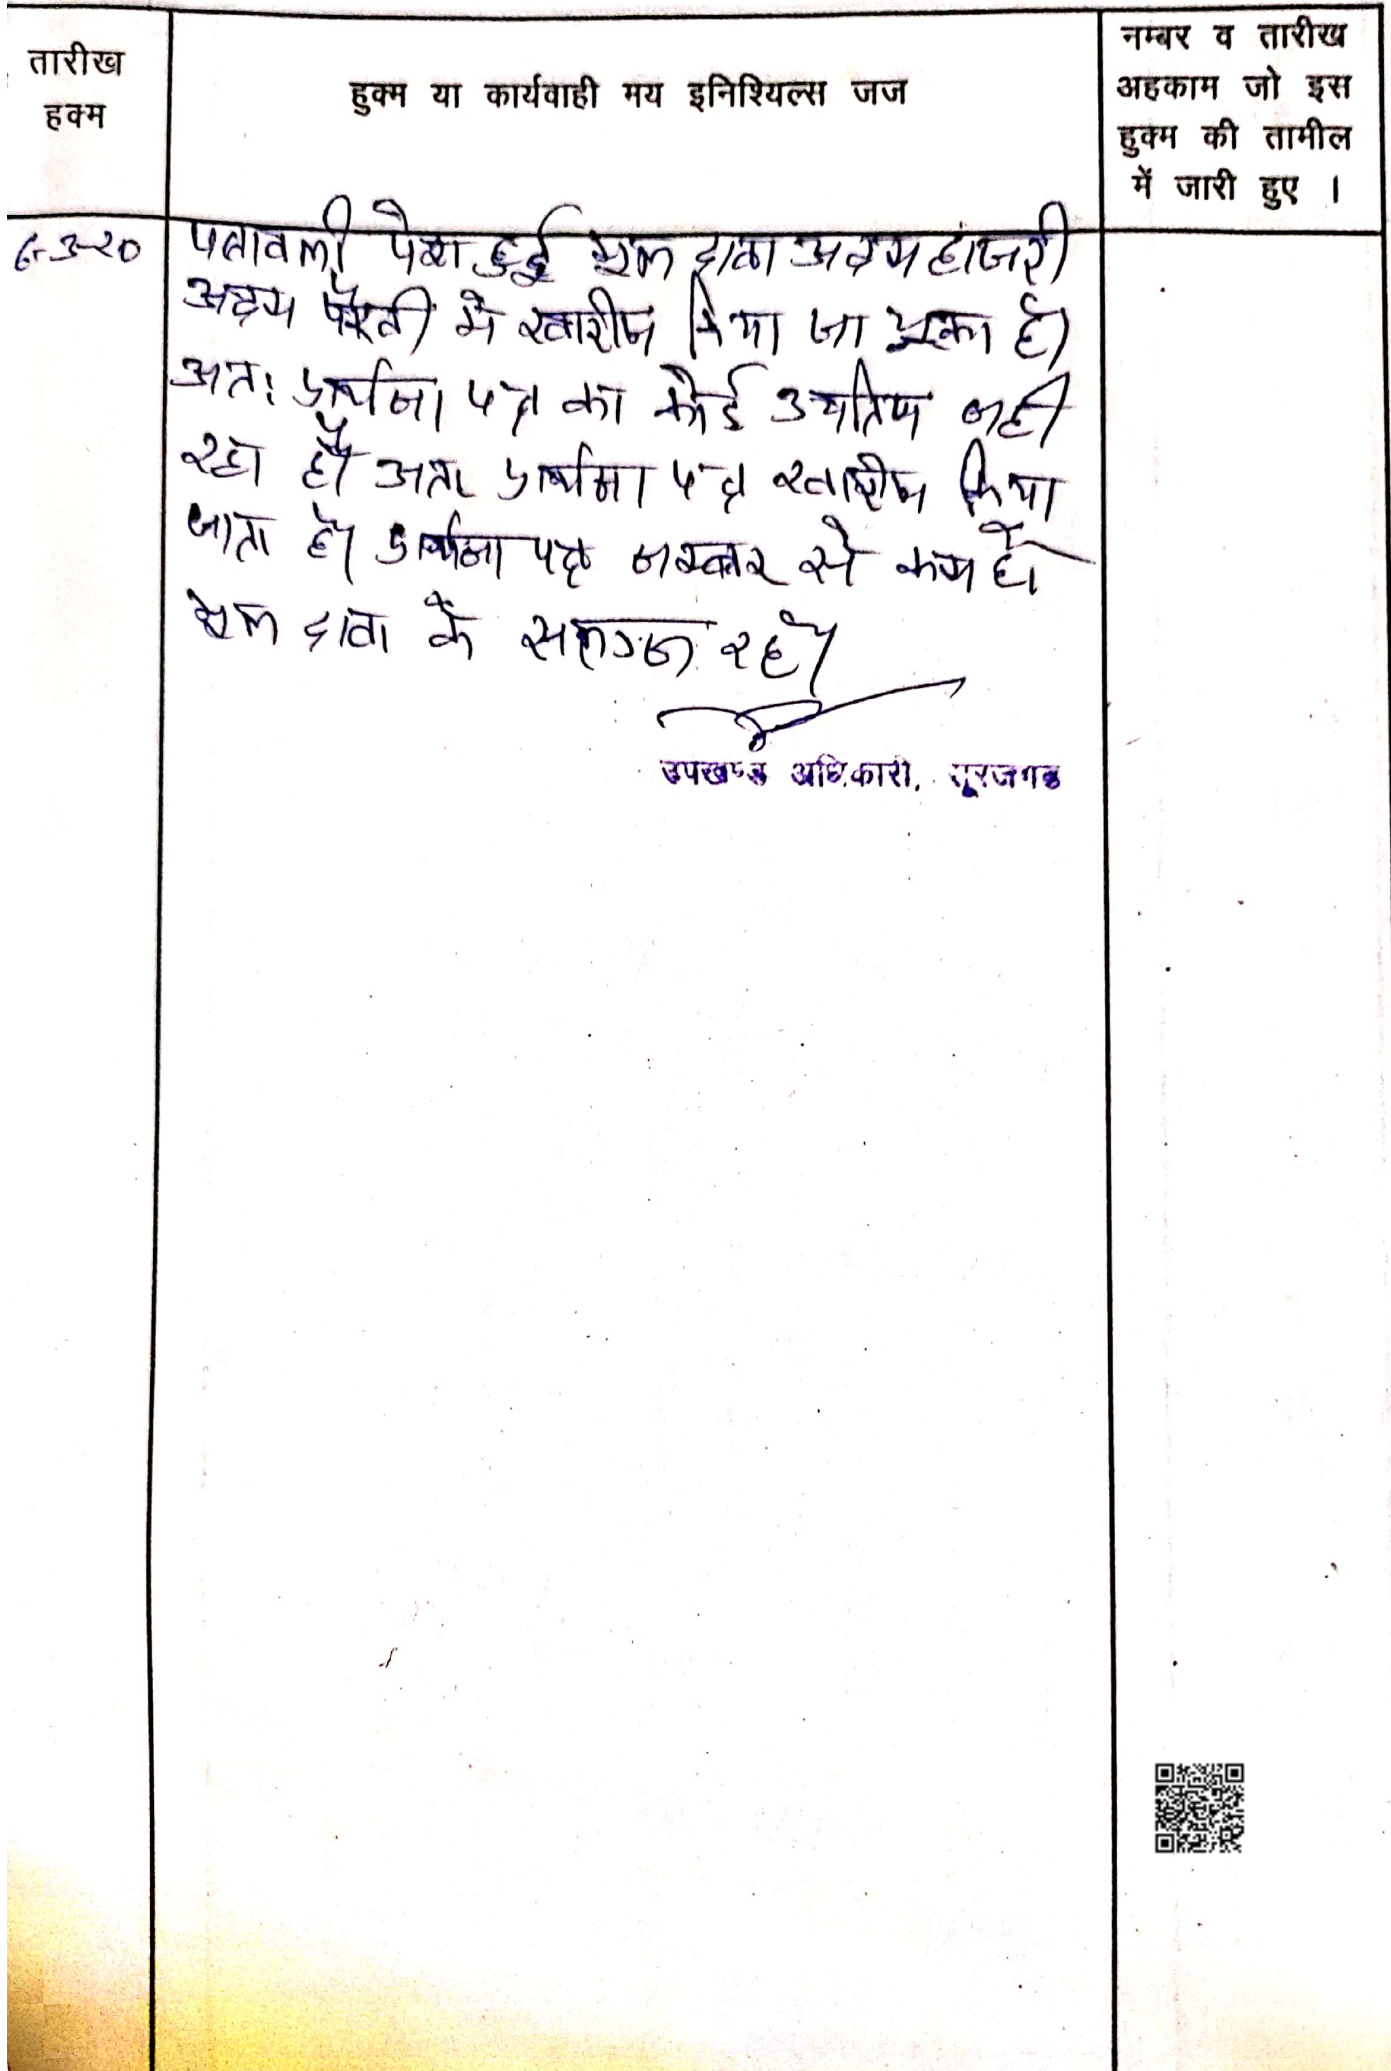 तारीख
हक्म
हुक्म या कार्यवाही मय इनिशियल्स जज
नम्बर व तारीख
अहकाम जो इस
हुक्म की तामील
में जारी हुए ।
6-3-20
पत्रावली पेश हुई मूल दावा अदम हाजरी
अदम पैरवी में खारीज किया जा चुका है।
अतः प्रार्थना पत्र का कोई औचित्य नही
रहा है। अतः प्रार्थना पत्र खारीज किया
जाता है। प्रार्थना पत्र नम्बर से कम हो
मूल दावा के सलग्न रहे।
उपखण्ड अधिकारी, सूरजगढ